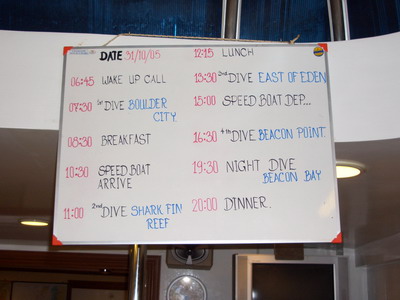 DATE 31/10/05
06:45 WAKE UP CALL
07:30 1st DIVE BOULDER
CITY
08:30 BREAKFAST
10:30 SPEED BOAT
ARRIVE
11:00 2nd DIVE SHARK FIN
REEF
12:15 LUNCH
13:30 2nd DIVE EAST OF EDEN
15:00 SPEED BOAT DEP...
16:30 4th DIVE BEACON POINT.
19:30 NIGHT DIVE
BEACON BAY
20:00 DINNER..